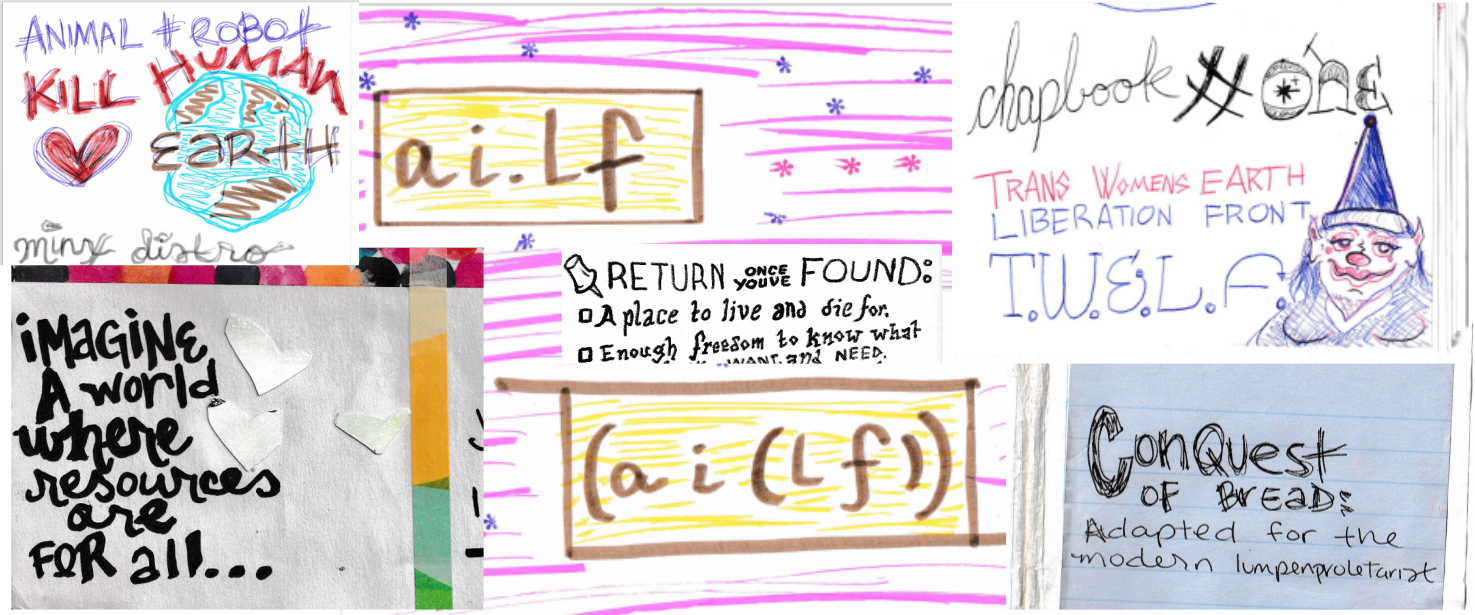 ANIMAL + ROBOT
KILL HUMAN
EARTH
miny distro
ai.Lf
chapbook #ONE
TRANS WOMENS EARTH
LIBERATION FRONT
T.W.E.L.F.
RETURN ONCE YOU'VE FOUND:
A place to live and die for.
Enough freedom to know what
WANT and NEED.
iMAGiNE
A world
where
resources
are
FOR all...
(a i (L f))
ConQuest
OF BREAD:
Adapted for the
modern lumpenproletariat